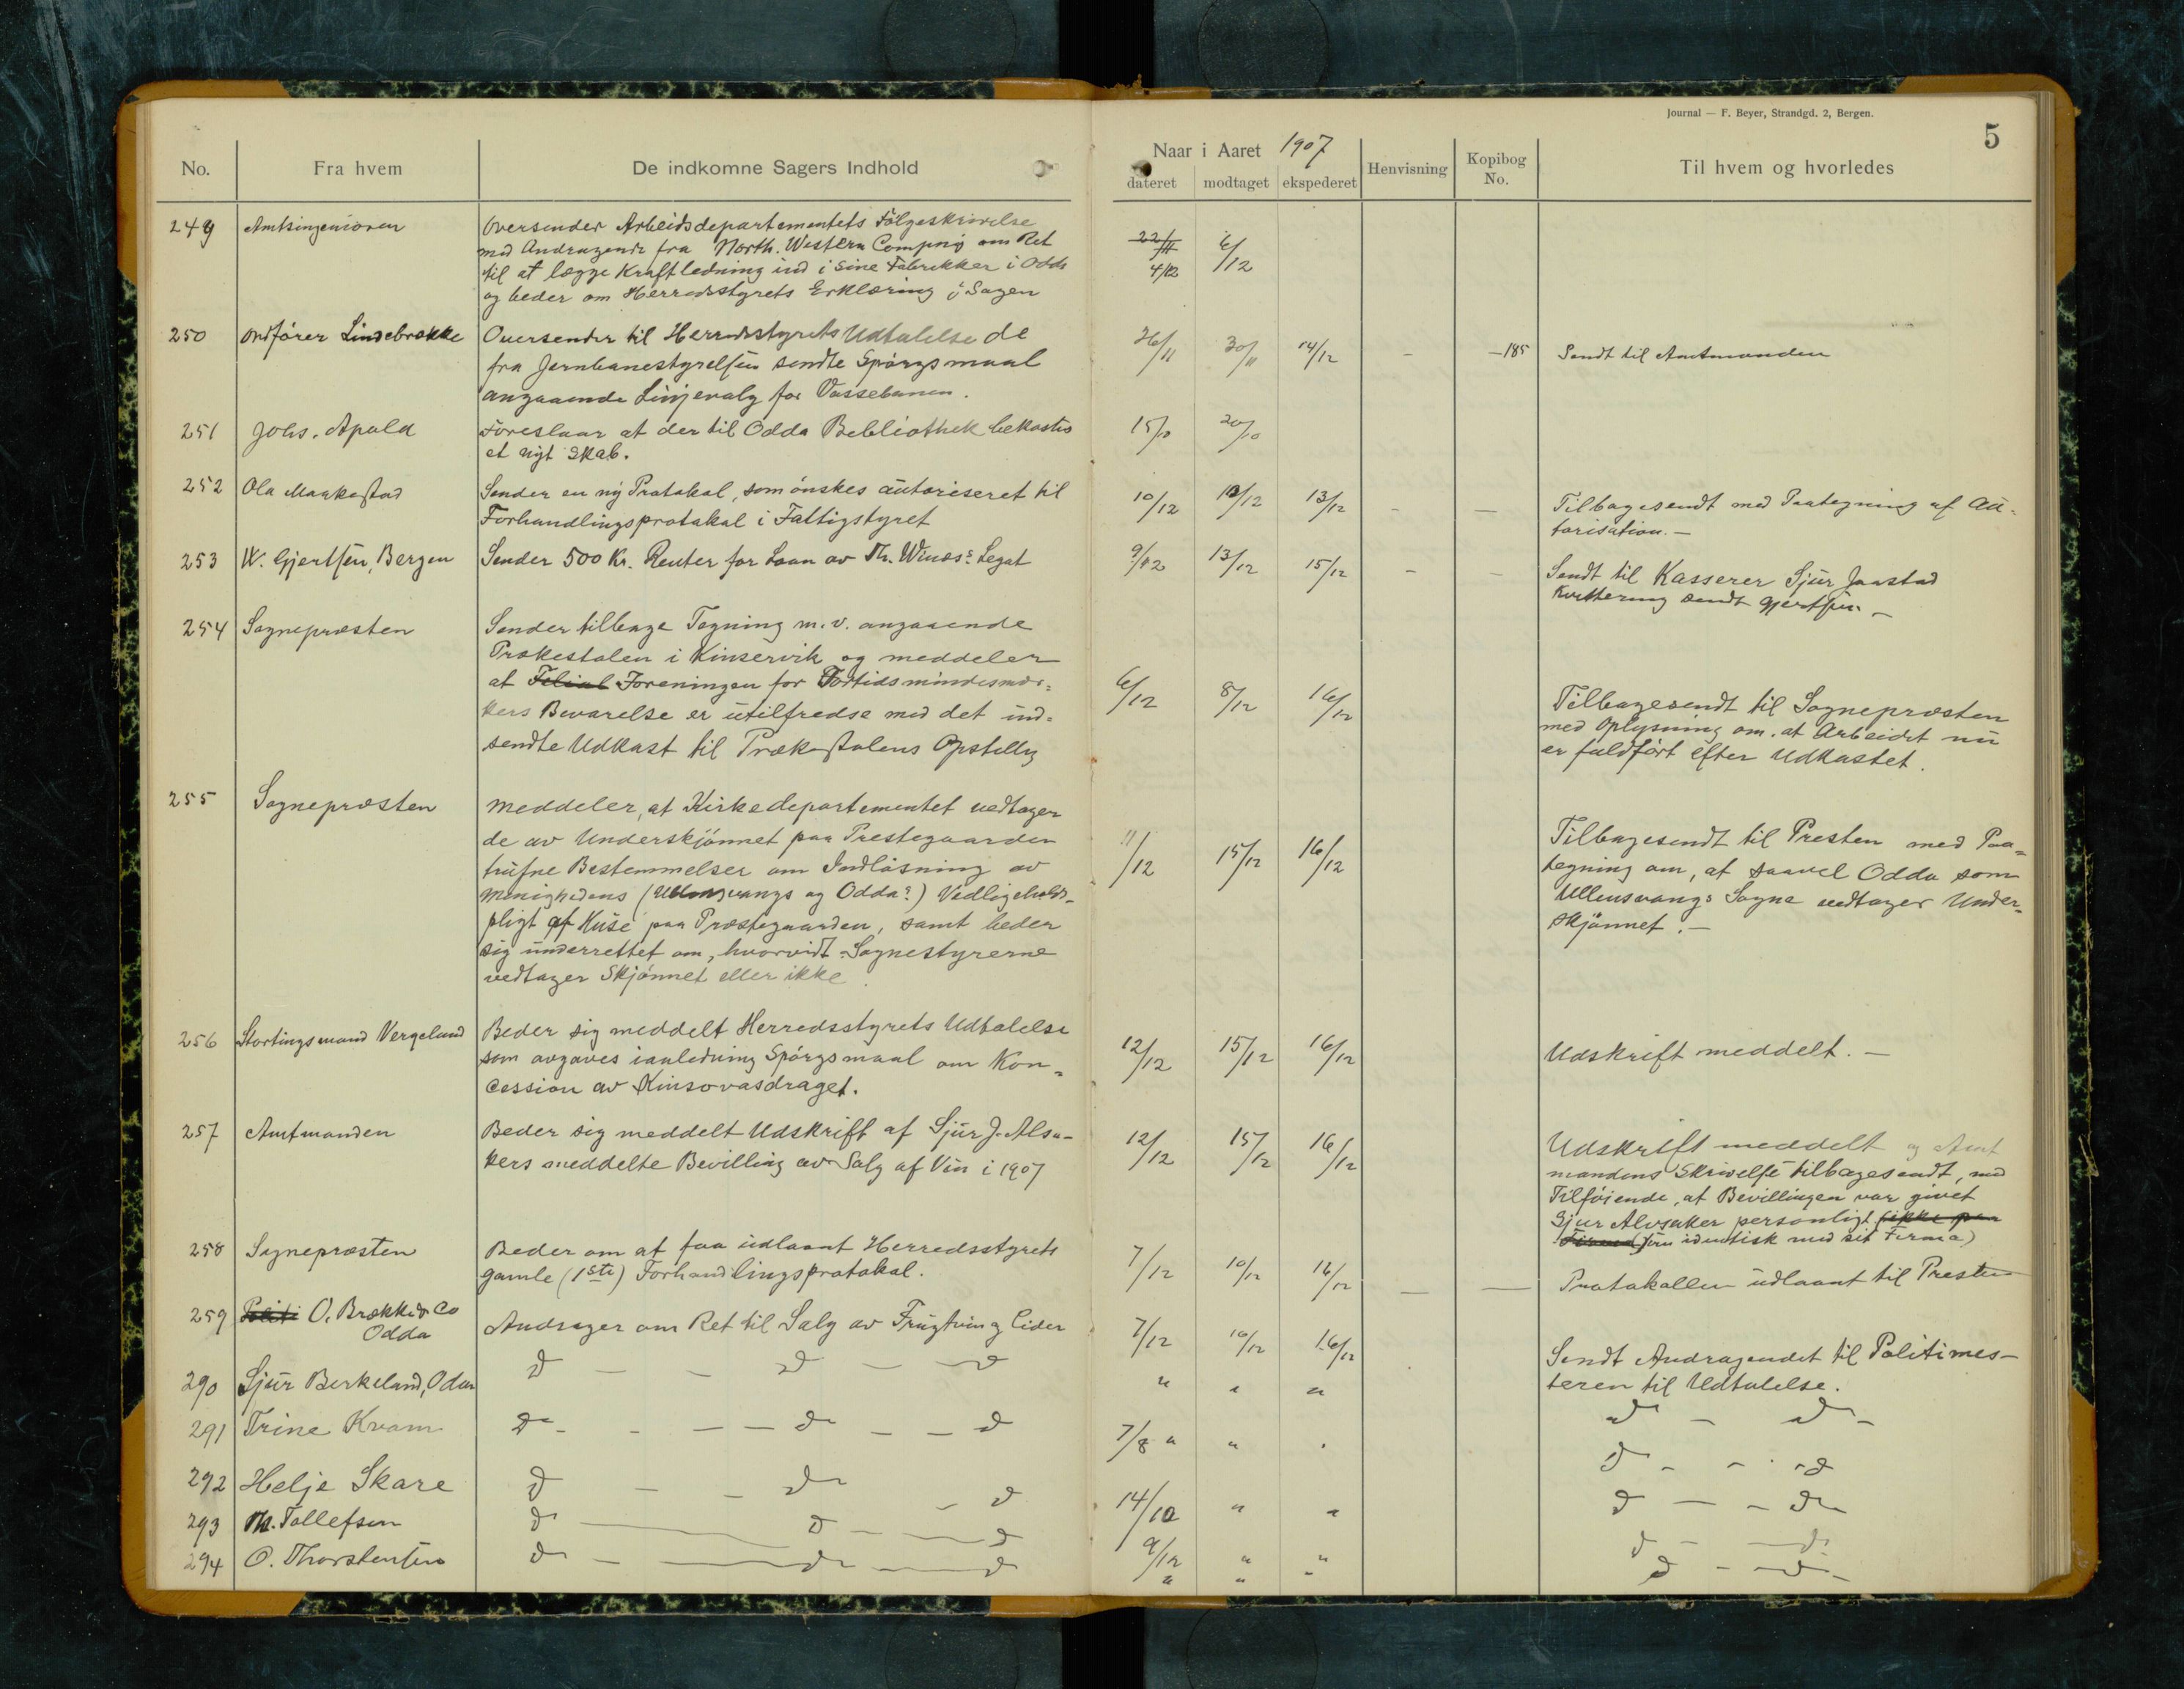 Journal — F. Beyer, Strandgd. 2, Bergen.
5
No. Fra hvem De indkomne Sagers Indhold
Naar i Aaret 1907
dateret modtaget ekspederet Henvisning Kopibog No. Til hvem og hvorledes
249 Amtsingeniören Oversender Arbeidsdepartementets Fölgeskrivelse
med Andragende fra North. Western Compny om Ret
til at lægge Kraftledning ind i sine Fabrikker i Odda
og beder om Herredsstyrets Erklæring i Sagen
22/11 6/12
4/12
250 Ordförer Lindebrække Oversender til Herredsstyrets Udtalelse de
fra Jernbanestyrelsen sendte Spörgsmaal
angaaende Linjevalg for Vossebanen.
26/11 30/11 14/12 - -185 Sendt til Amtmanden
251 Johs. Apold Foreslaar at der til Odda Bebliothek bekostes
et nyt Skab.
15/10 20/10
252 Ola Maakestad Sender en ny Protokol, som önskes autoriseret til
Forhandlingsprotokol i Fattigstyret
10/12 12/12 13/12 - — Tilbagesendt med Paategning af Au-
torisation. —
253 W. Gjertsen, Bergen Sender 500 Kr. Renter for Laan av Th. Wines' Legat
9/12 13/12 15/12 - - Sendt til Kasserer Sjur Jaastad
Kvittering sendt Gjertsen. —
254 Sognepræsten Sender tilbage Tegning m. v. angaaende
Prækestolen i Kinservik og meddeler
at Filial Foreningen for Fortidsmindesmær-
kers Bevarelse er utilfredse med det ind-
sendte Udkast til Prækestolens Opstilling
6/12 8/12 16/12 Tilbagesendt til Sognepræsten
med Oplysning om, at Arbeidet nu
er fuldfört efter Udkastet.
255 Sognepræsten Meddeler, at Kirkedepartementet vedtager
de av Underskjönnet paa Prestegaarden
trufne Bestemmelser om Indlösning av
Menighedens (Ullensvangs og Odda's) Vedligeholds-
pligt af Huse paa Præstegaarden, samt beder
sig underrettet om, hvorvidt Sognestyrerne
vedtager Skjönnet eller ikke.
11/12 15/12 16/12 Tilbagesendt til Presten med Paa-
tegning om, at saavel Odda som
Ullensvangs Sogne vedtager Under-
skjönnet. —
256 Stortingsmand Vergeland Beder sig meddelt Herredsstyrets Udtalelse
som avgaves i anledning Spörgsmaal om Kon-
cession av Kinsovasdraget.
12/12 15/12 16/12 Udskrift meddelt. —
257 Amtmanden Beder sig meddelt Udskrift af Sjur J. Alsa-
kers meddelte Bevilling av Salg af Vin i 1907
12/12 15/12 16/12 Udskrift meddelt og Amt
mandens Skrivelse tilbagesendt, med
Tilföiende, at Bevillingen var givet
Sjur Alvsaker personligt (ikke paa
Firma) (en identisk med sit Firma)
258 Sognepræsten Beder om at faa udlaant Herredsstyrets
gamle (1ste) Forhandlingsprotokol.
7/12 10/12 16/12 — — Protokollen udlaant til Presten
259 Politi O. Brække & Co
Odda
Andrager om Ret til Salg av Frugtvin og Cider
7/12 10/12 16/12 Sendt Andragendet til Politimes-
teren til Udtalelse.
290 Sjur Berkeland, Odda D — — D — D " " "
D — D -
291 Trine Kvam D - - — — D — — D 7/8 " " "
D - - - D
292 Helje Skare D — — D — D 14/10 " "
D — - D
293 Th. Tollefsen D — D — — D 9/12 " "
D - — D
294 O. Thorstensen D — — D — D " " "
D - — D -